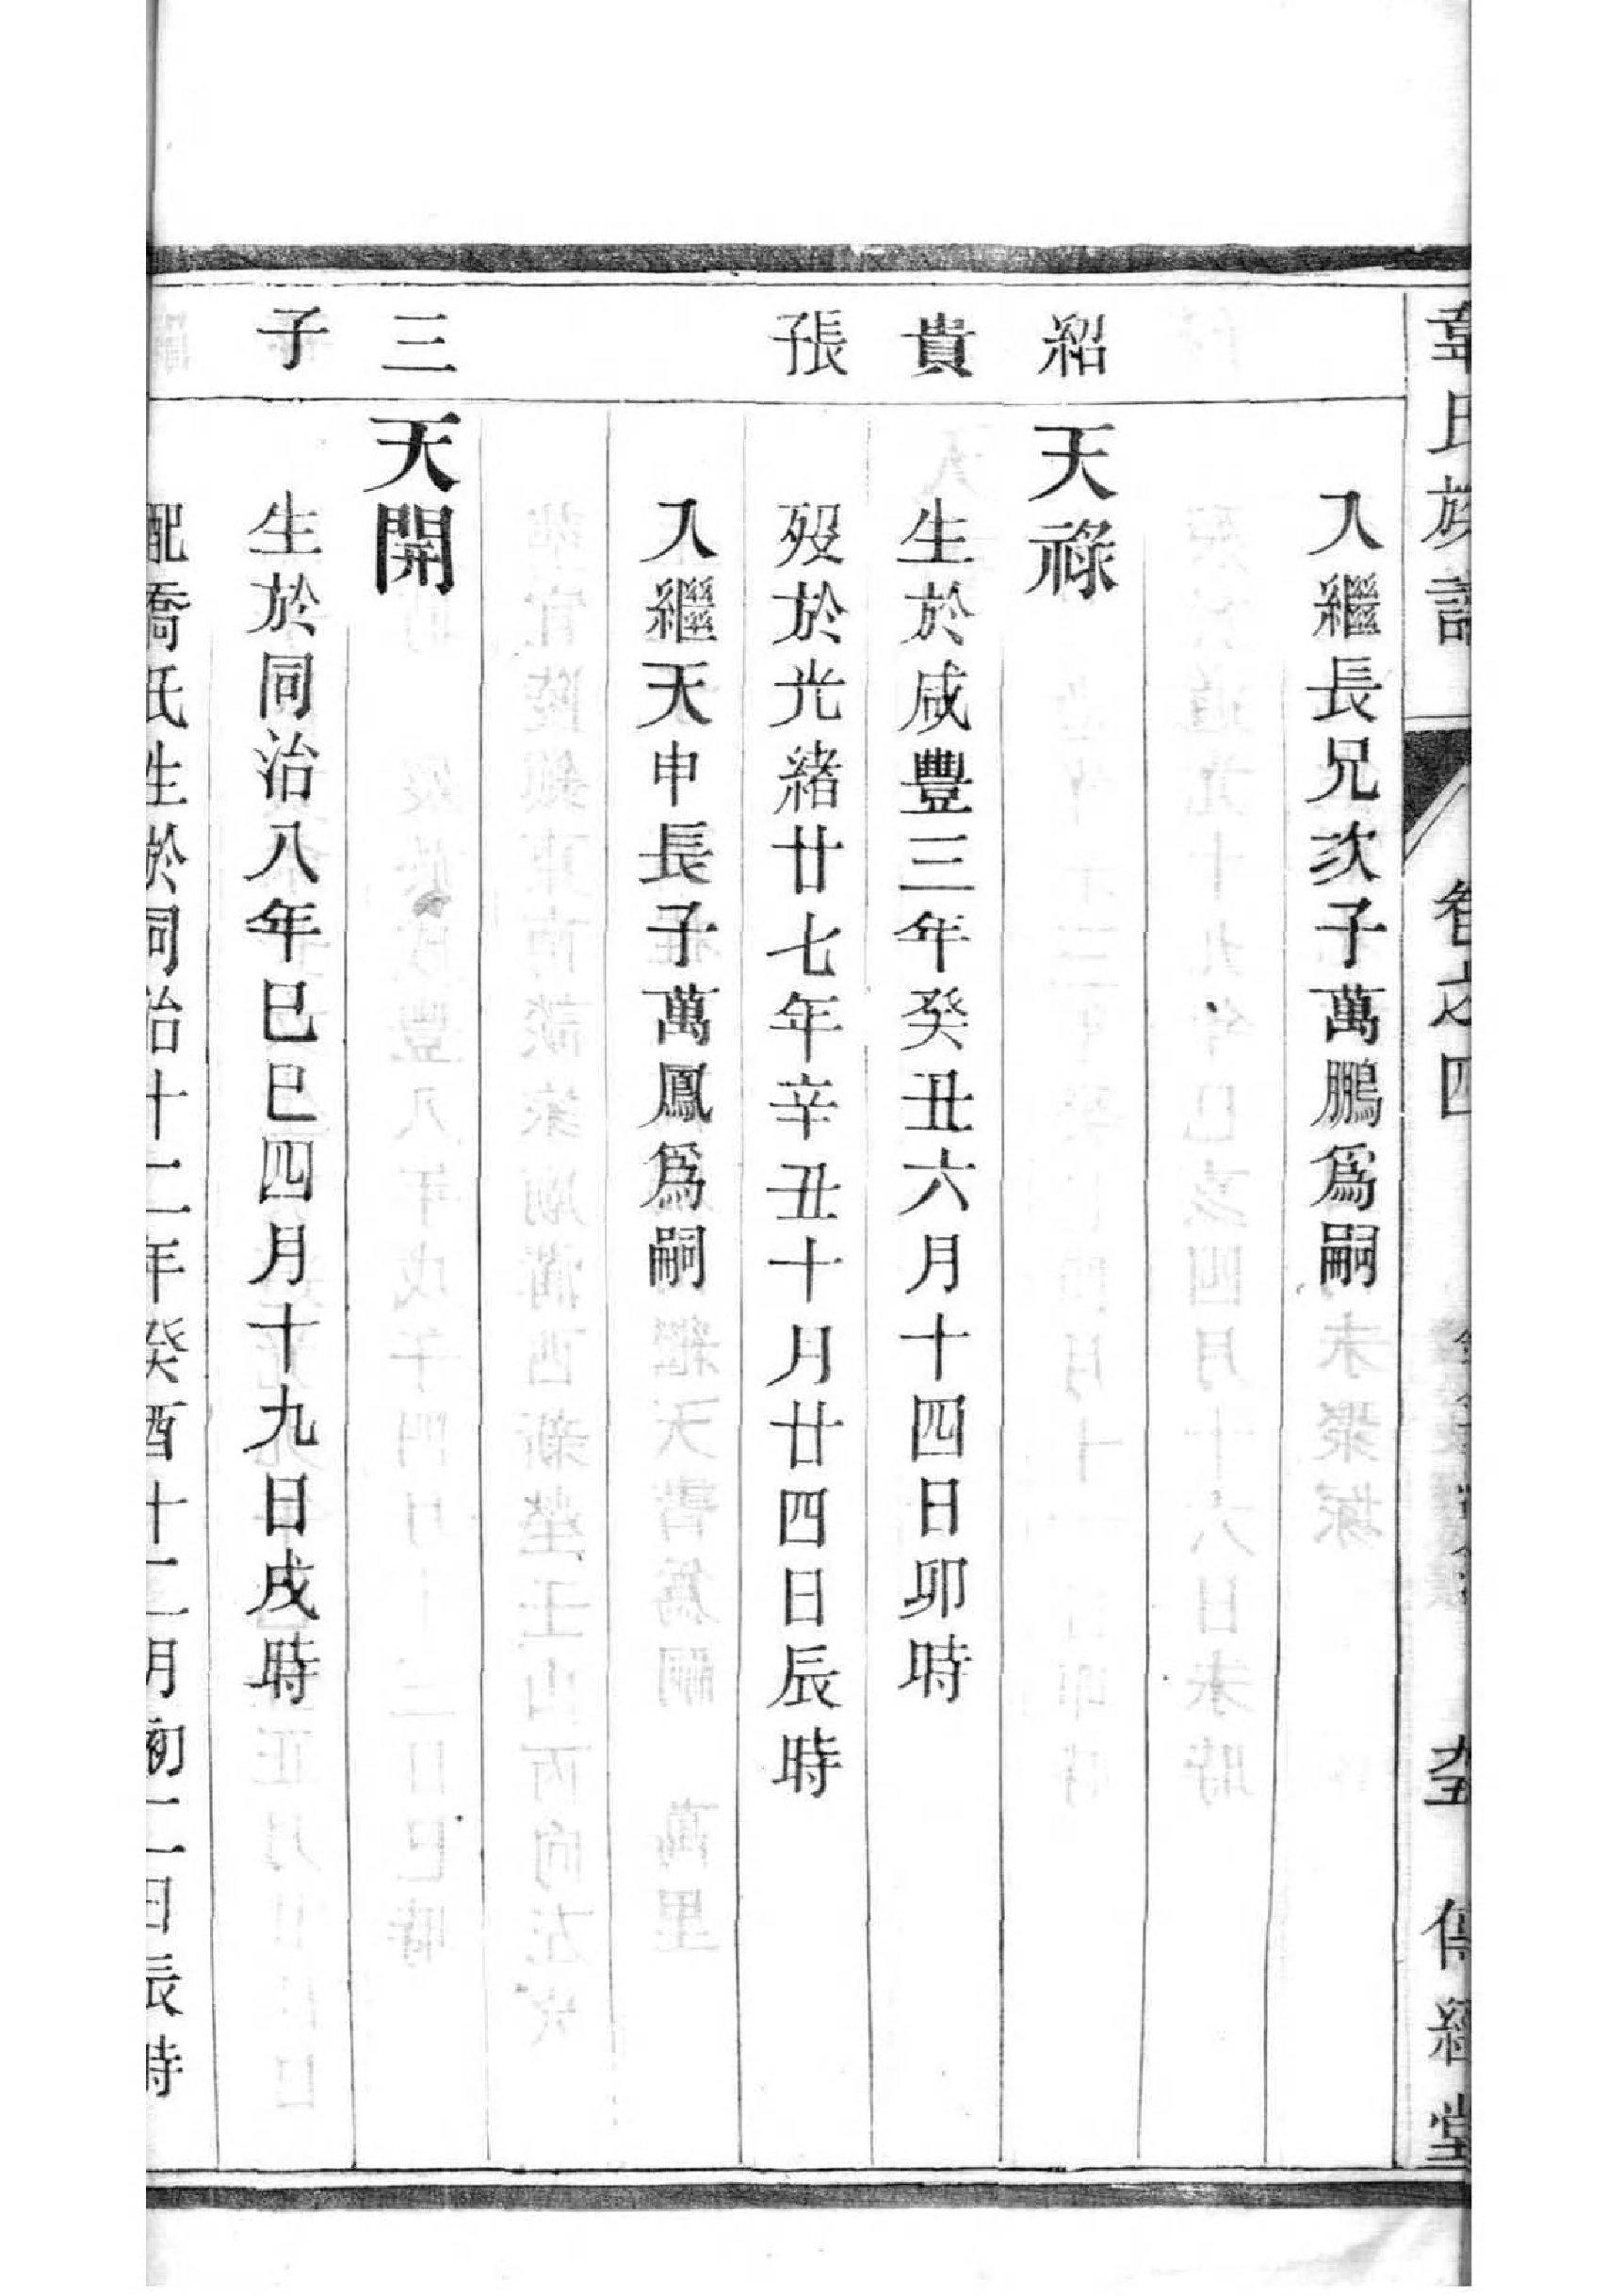 章氏族譜
卷之四
傳經堂
入繼長兄次子萬鵬爲嗣
紹
天祿
貴
生於咸豐三年癸丑六月十四日卯時
張
歿於光緒廿七年辛丑十月廿四日辰時
入繼天申長子萬鳳爲嗣
三
天開
子
生於同治八年巳巳四月十九日戌時
配喬氏生於同治十二年癸酉十二月初二日辰時